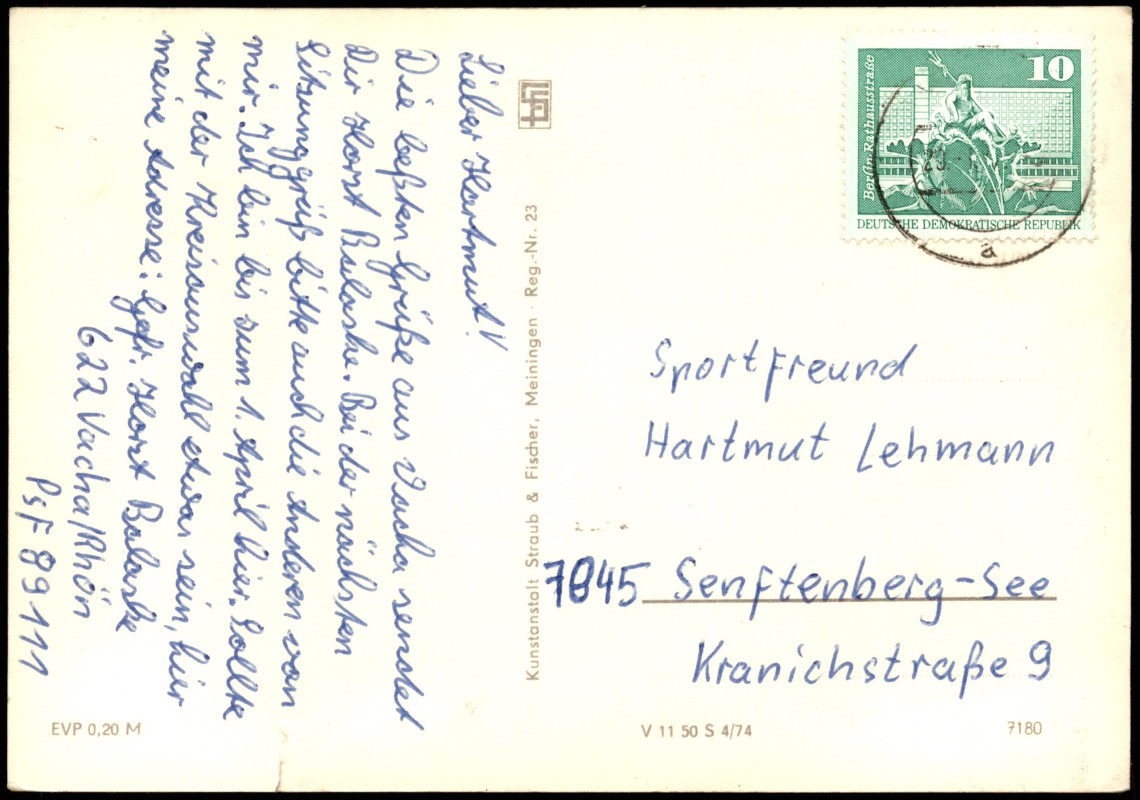 Lieber Hartmut!
Die beßten Grüße aus Vacha sendet
Dir Horst Balaske. Bei der nächsten
Sitzung grüß bitte auch die Anderen von
mir. Ich bin bis zum 1. April hier. Sollte
mit der Kreisauswahl etwas sein, hier
meine Adresse: Gefr. Horst Balaske
622 Vacha/Rhön
PsF 89111
Kunstanstalt Straub & Fischer, Meiningen · Reg.-Nr. 23
Berlin-Rathausstraße
10
DEUTSCHE DEMOKRATISCHE REPUBLIK
a
Sportfreund
Hartmut Lehmann
7845 Senftenberg-See
Kranichstraße 9
EVP 0,20 M
V 11 50 S 4/74
7180